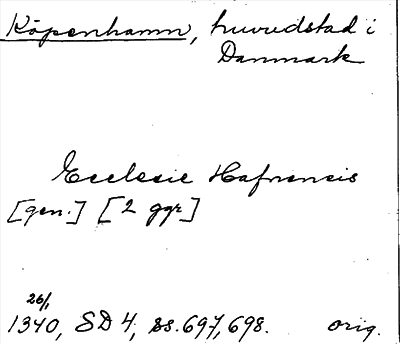 Köpenhamn, huvudstad i
Danmark
Ecclesie Hafnensis
[gen.] [2 ggr]
26/1
1340, SD 4, ss. 697, 698. orig.